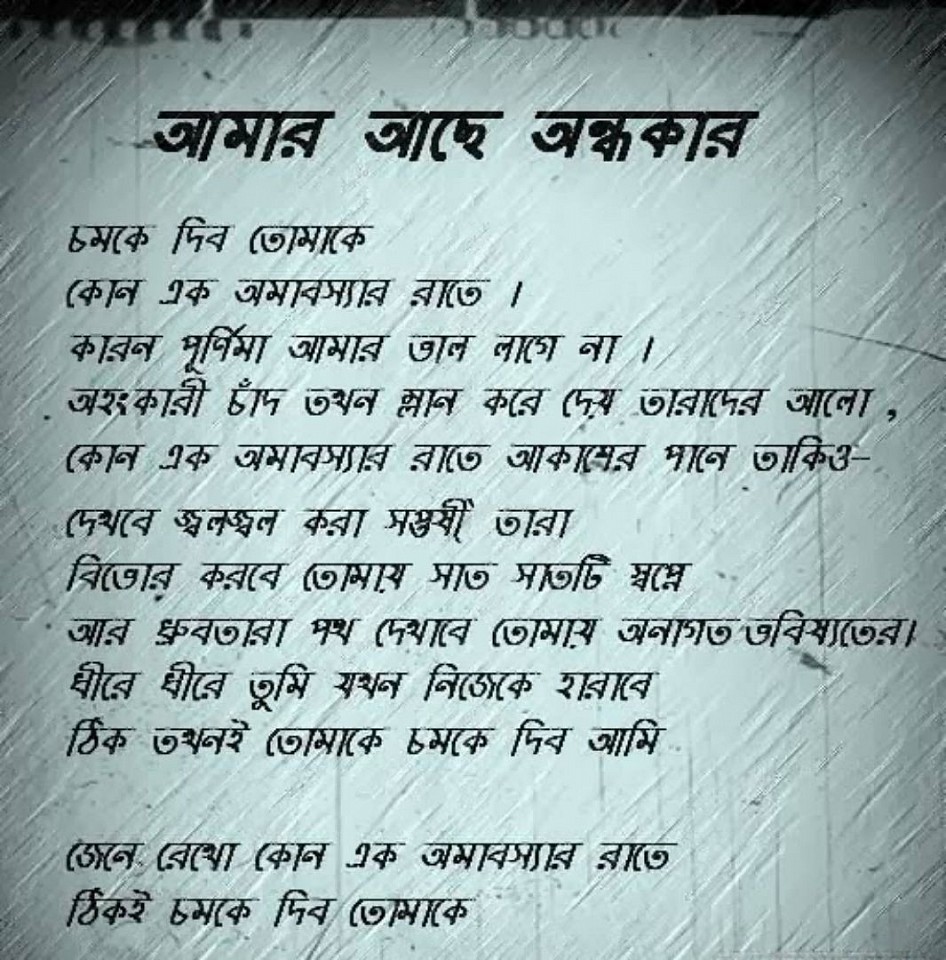 আমার আছে অন্ধকার
চমকে দিব তোমাকে
কোন এক অমাবস্যার রাতে ।
কারন পূর্ণিমা আমার ভাল লাগে না ।
অহংকারী চাঁদ তখন ম্লান করে দেয় তারাদের আলো ,
কোন এক অমাবস্যার রাতে আকাশের পানে তাকিও–
দেখবে জ্বলজ্বল করা সপ্তর্ষী তারা
বিভোর করবে তোমায় সাত সাতটি স্বপ্নে
আর ধ্রুবতারা পথ দেখাবে তোমায় অনাগত ভবিষ্যতের।
ধীরে ধীরে তুমি যখন নিজেকে হারাবে
ঠিক তখনই তোমাকে চমকে দিব আমি
জেনে রেখো কোন এক অমাবস্যার রাতে
ঠিকই চমকে দিব তোমাকে